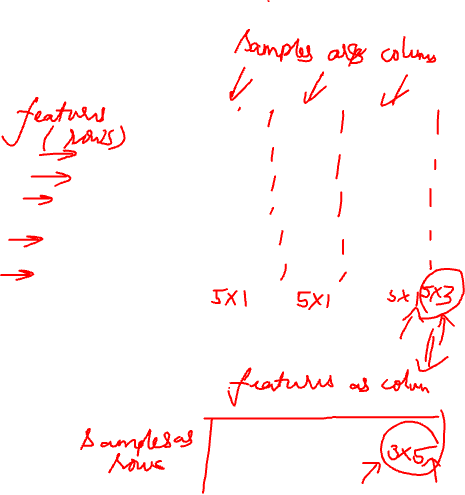 Samples as column
features
(rows)
5X1 5X1 5X1 5X3
features as colum
Samples as
rows
3X5